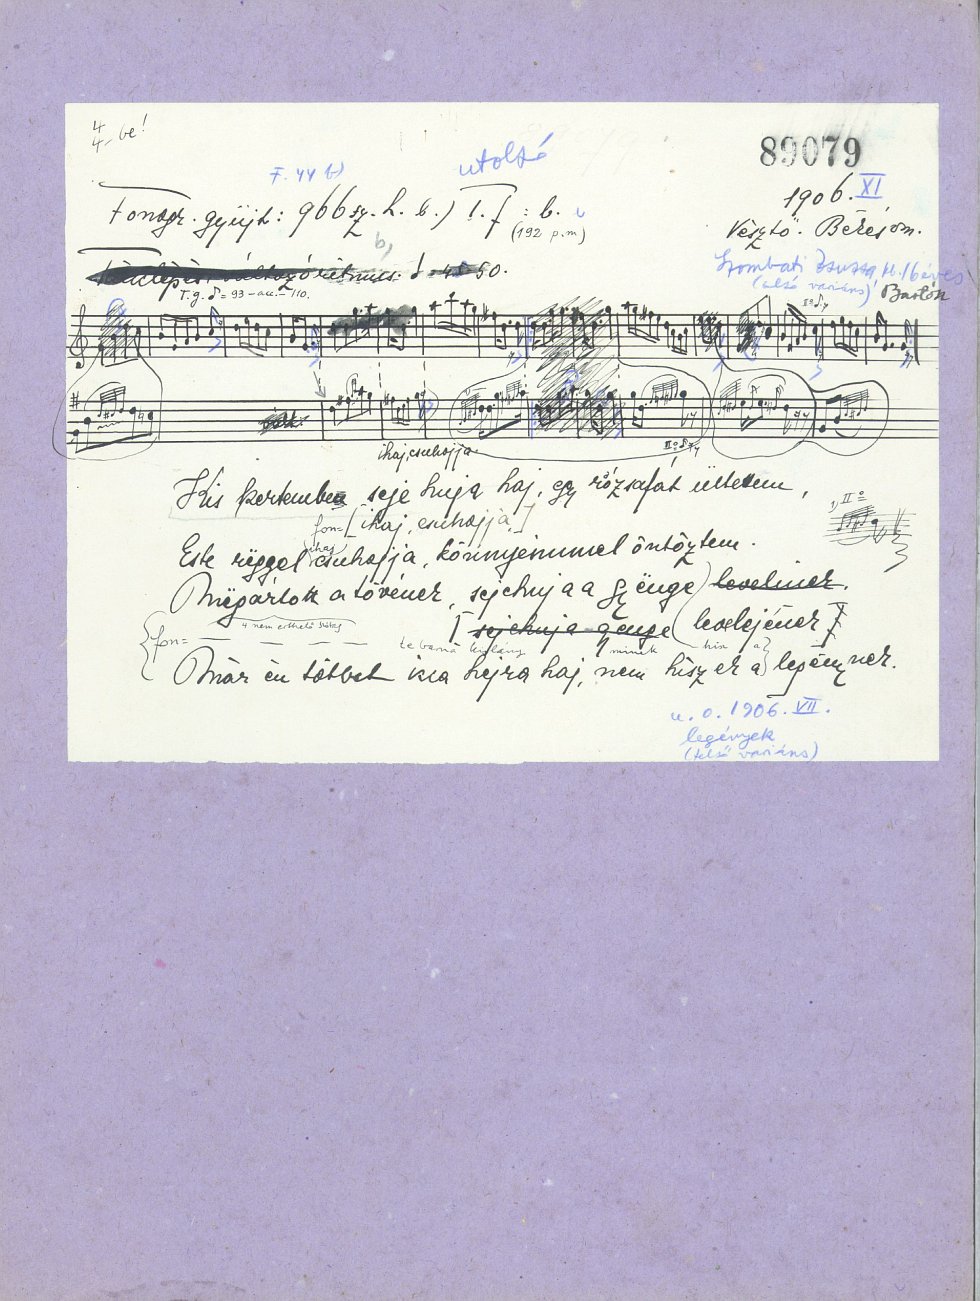 4/4-be!
89079
F. 44 b)
utolsó
1906. XI
Fonogr. gyűjt: 966 sz. h. b.) T. F : b.
(192 p.m)
Vésztő. Békés m.
b,
♩ = 48-50.
Szombati Zsuzsa 16 éves
(alsó variáns)
Bartók
T.g. = 93 - acc. - 110.
ihaj, csuhajja
Kis kertembe seje huja haj, egy rózsafát ültettem,
fon=[ihaj, csuhajja,]
II=
ihaj
Este réggel csuhajja, könnyeimmel öntöztem.
Mëgártok a tövének, sejehuja a gyënge levelinek.
sejehuja gënge levelejének
fon=
4 nem érthető szótag
te barna kislány
minek
hisz
a
Már én többet ica hejra haj, nem hiszek a legénynek.
u. o. 1906. VII.
legények
(felső variáns)